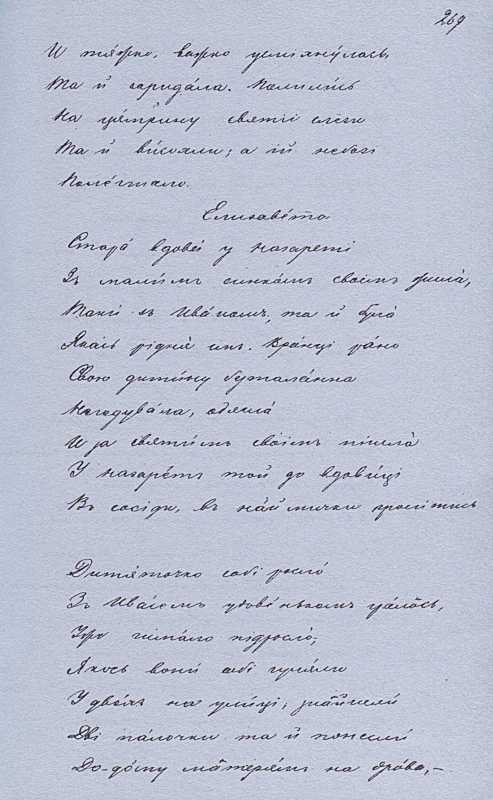 269
И тя́жко, важко усміхну́лась
Та й зарида́ла. Полили́сь
На ця́мрину святії сльози
Та й ви́сохли; а їй небозі
Поле́гшало.
Елисаве́та
Стара́ вдова́ у Назареті
Зъ мали́мъ синко́мъ своїмъ жила́,
Таки зъ Ива́номъ, та й була́
Яка́сь рідня́ имъ. Вра́нці ра́но
Свою дити́ну безтала́нна
Нагодува́ла, одягла́
И за святи́мъ своїмъ пішла́
У Назаре́тъ той до вдови́ці
Въ сосіди, въ на́ймички проси́тись
Дитя́точко собі росло́
Зъ Ива́сомъ удове́нькомъ гра́лось,
Уже чима́ло підросло́;
Якось вони́ собі гуля́ли
У двохъ на у́лиці; знайшли́
Дві па́лочки та й понесли́
До-до́му матеря́мъ на дро́ва,–